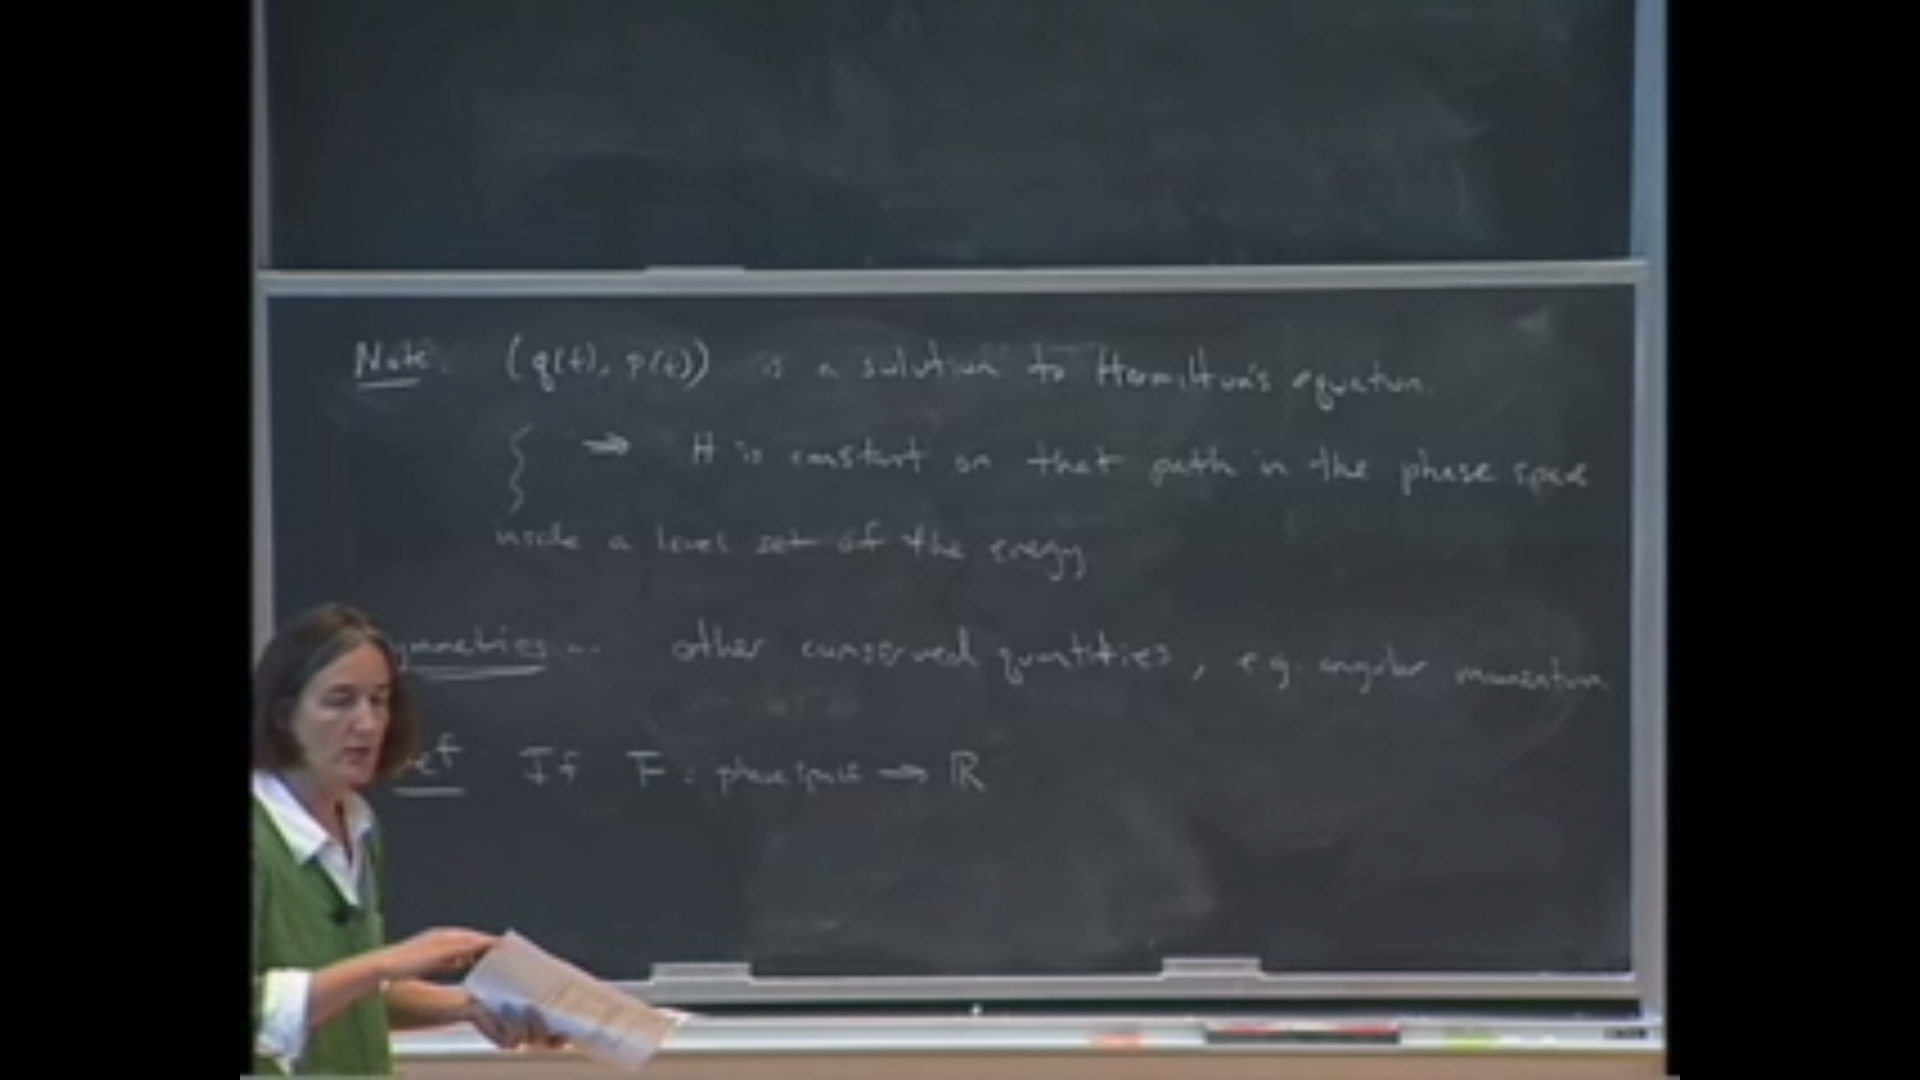 Note: (q(t), p(t)) is a solution to Hamilton's equation.
→ H is constant on that path in the phase space
inside a level set of the energy
ymmetries... other conserved quantities, e.g. angular momentum.
ef If F : phase space → ℝ